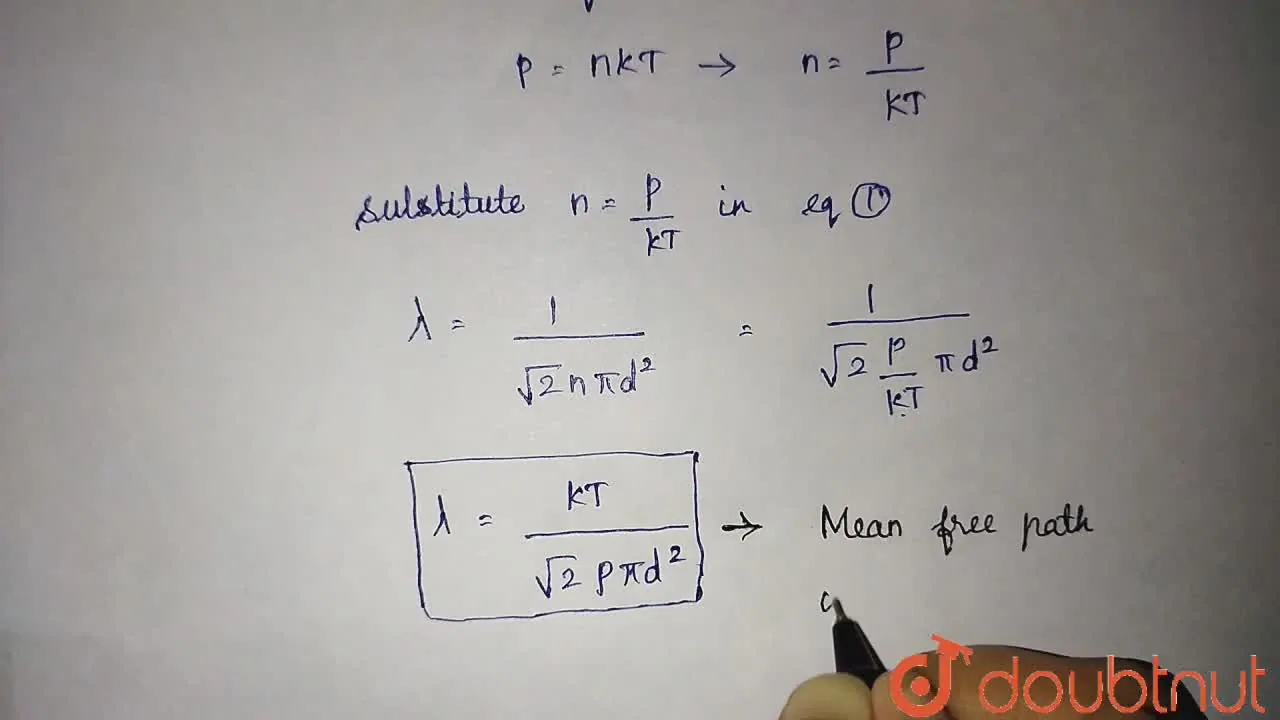 p = nkT → n = p/kT
substitute n = p/kT in eq ①
λ = 1/√2 n π d² = 1/√2 p/kT π d²
λ = kT/√2 p π d² → Mean free path
doubtnut